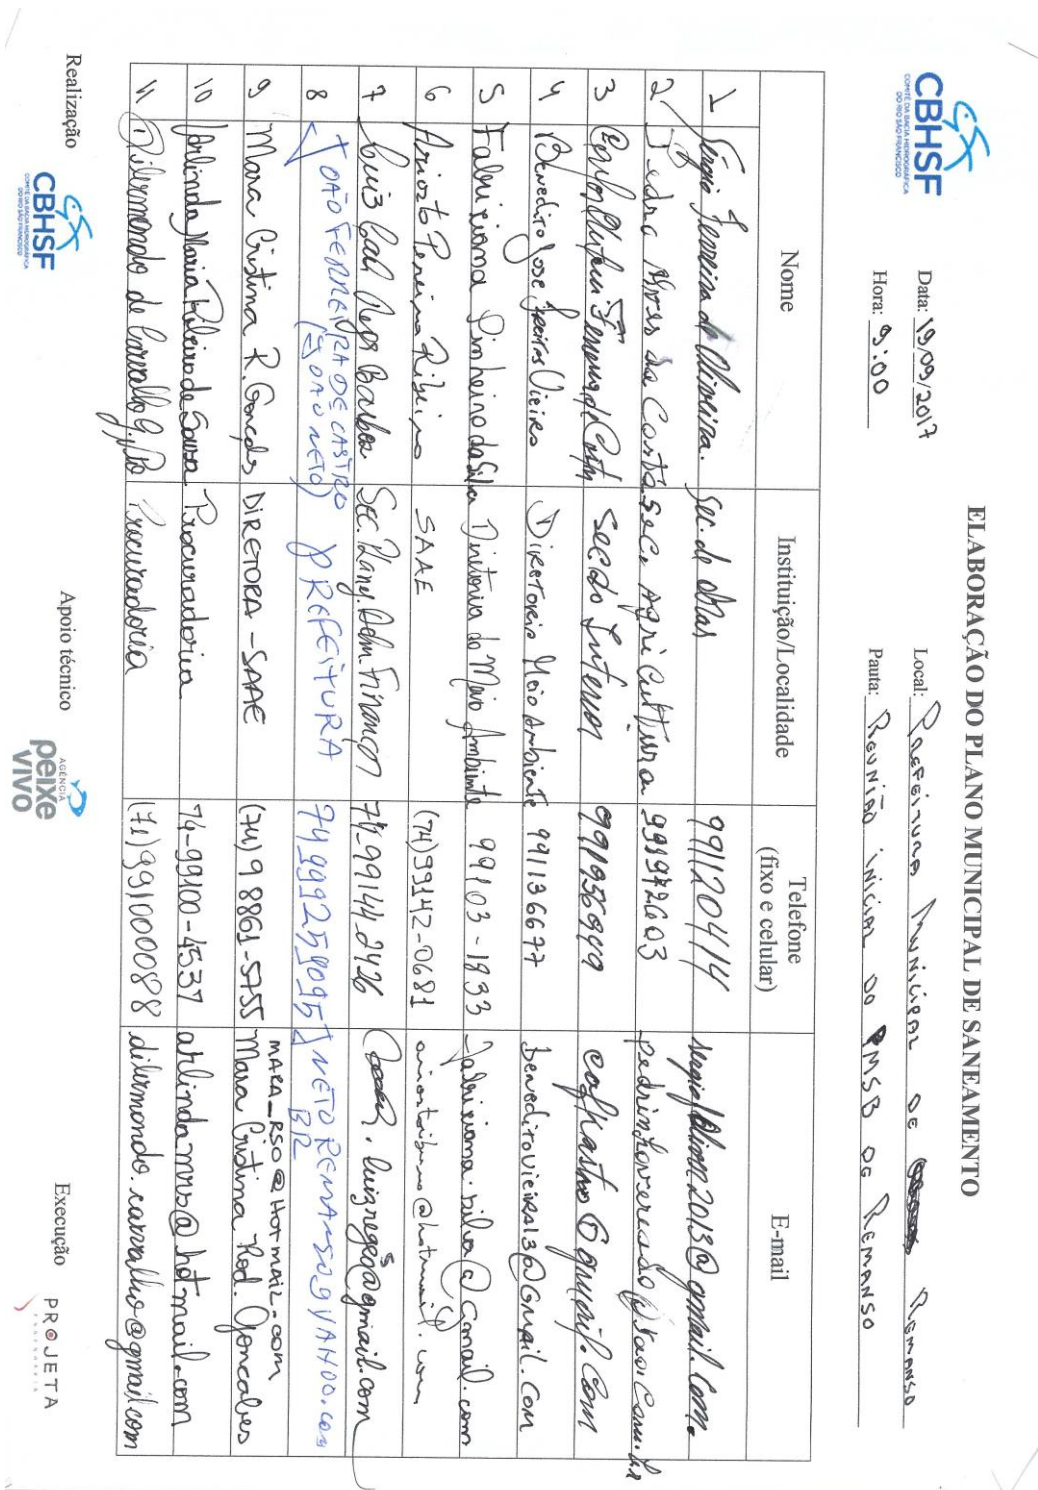 CBHSF
COMITÊ DA BACIA HIDROGRÁFICA
DO RIO SÃO FRANCISCO
ELABORAÇÃO DO PLANO MUNICIPAL DE SANEAMENTO
Data: 19/09/2017
Local: PREFEITURA MUNICIPAL DE REMANSO
Hora: 9:00
Pauta: REUNIÃO INICIAL DO PMSB DE REMANSO
Nome Instituição/Localidade Telefone (fixo e celular) E-mail
1 Sérgio Ferreira de Oliveira. Sec. de obras 991120414
2 Pedro Alves da Costa Sec. Agricultura 999972603
3 Sec do Interior
4 Benedito José Freitas Vieira Diretoria Meio Ambiente 991136677 beneditovieira13@Gmail.com
5 Fabriciana Pinheiro da Silva Diretoria do Meio Ambiente 99103-1933 fabriciana.silva@Gmail.com
6 Ariosto Pereira Ribeiro SAAE (74)99142-0681
7 Luis Rego Barbosa Sec. Planej. Adm. Finanças 74-99144-2426 luizregos@gmail.com
8 JOÃO FERREIRA DE CASTRO (JOÃO NETO) PREFEITURA 74999259095 JNETOREMANSO@YAHOO.com BR
9 Mara Cristina R. Gonçalves DIRETORA - SAAE (74) 9 8861-5755 MARA_RSO@Hotmail.com Mara Cristina Rod. Goncalves
10 Arlinda Maria Ribeiro de Sousa Procuradoria 74-99100-4537 arlindamrs@hotmail.com
11 Dilermando de Carvalho Procuradoria (71)991000088 dilermondo.carvalho@gmail.com
Realização
CBHSF
COMITÊ DA BACIA HIDROGRÁFICA
DO RIO SÃO FRANCISCO
Apoio técnico
AGÊNCIA
peixe
vivo
Execução
PROJETA
ENGENHARIA